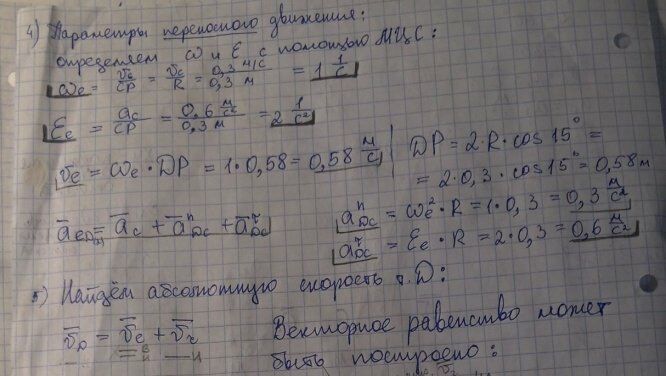 4) Параметры переносного движения:
определяем ω и ε с помощью МЦС:
ωe = vc/CP = vc/R = 0,3 м/с / 0,3 м = 1 1/с
εe = ac/CP = 0,6 м/с² / 0,3 м = 2 1/с²
ve = ωe · DP = 1 · 0,58 = 0,58 м/с
DP = 2 · R · cos 15° =
= 2 · 0,3 · cos 15° = 0,58 м
āeD = āc + āⁿDC + āᵗDC
aⁿDC = ωe² · R = 1 · 0,3 = 0,3 м/с²
aᵗDC = εe · R = 2 · 0,3 = 0,6 м/с²
5) Найдём абсолютную скорость т. D:
v̄D = v̄e + v̄r Векторное равенство может
быть построено: